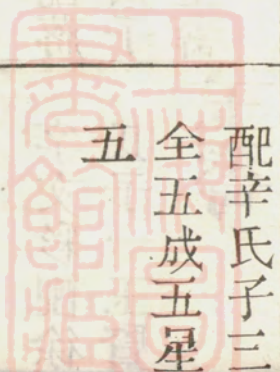 配辛氏子三
全五成五星
五